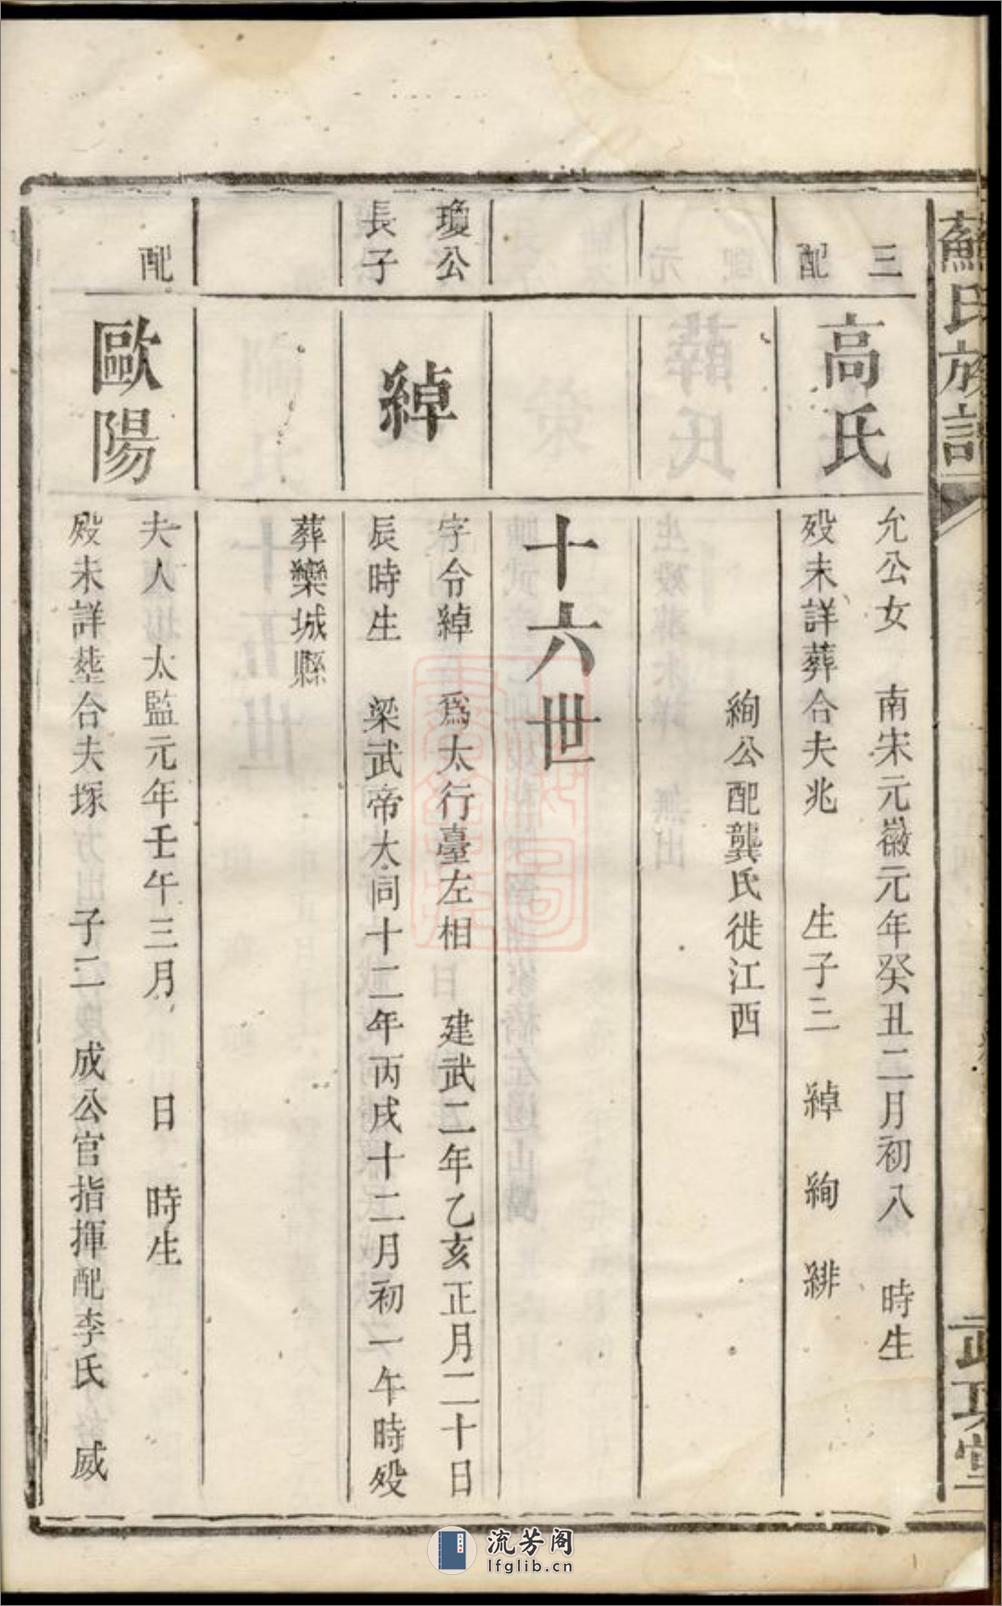 蘇氏族譜
武功堂
三
配
高氏
允公女　南宋元徽元年癸丑二月初八　時生
歿未詳葬合夫兆　生子三　綽　絢　緋
絢公配龔氏徙江西
十六世
瓊公
長子
綽
字令綽　為太行臺左相　建武二年乙亥正月二十日
辰時生　梁武帝大同十二年丙戌十二月初一午時歿
葬欒城縣
配
歐陽
夫人　太監元年壬午三月　日　時生
歿未詳塟合夫塚　子二　成公官指揮配李氏　威
流芳阁
lfglib.cn